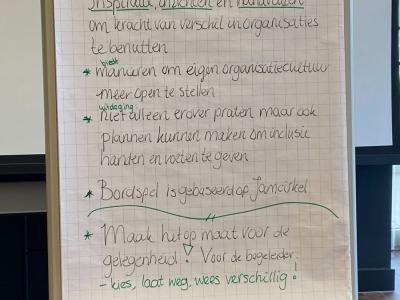 Inspiratie, inzichten en handvaten
om kracht van verschil in organisaties
te benutten
* biedt manieren om eigen organisatiecultuur
meer open te stellen
uitdaging
* niet alleen erover praten maar ook
plannen kunnen maken om inclusie
handen en voeten te geven
* Bordspel is gebaseerd op Jamcirkel
* Maak het op maat voor de
gelegenheid! Voor de begeleider:
- kies, laat weg, wees verschillig!